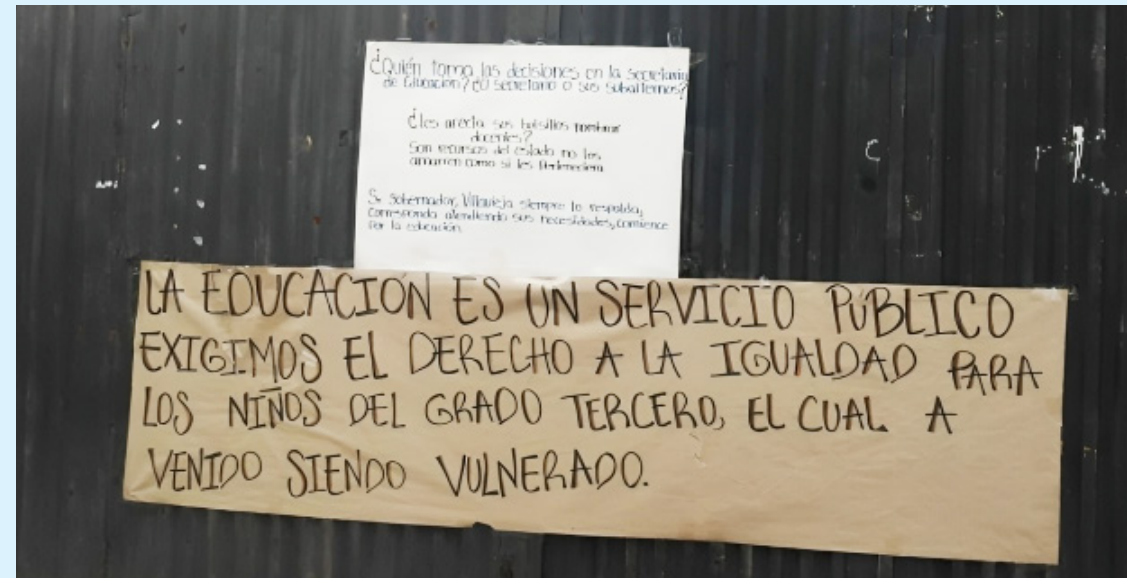 ¿Quién toma las decisiones en la secretaría
de Educación? ¿El secretario o sus subalternos?
¿Les afecta sus bolsillos nombrar
docentes?
Son recursos del estado no los
amarren como si les perteneciera
Sr Gobernador, Villavieja siempre lo respalda,
corresponda atendiendo sus necesidades, comience
por la educación.
LA EDUCACIÓN ES UN SERVICIO PÚBLICO
EXIGIMOS EL DERECHO A LA IGUALDAD PARA
LOS NIÑOS DEL GRADO TERCERO, EL CUAL A
VENIDO SIENDO VULNERADO.